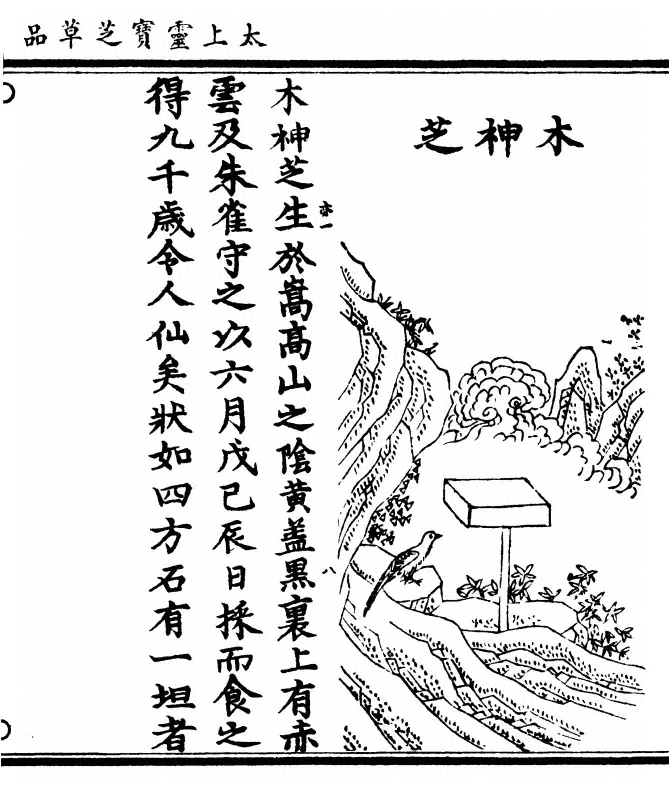 太上靈寶芝草品
木神芝
亦一
八
木神芝生於嵩高山之陰黄盖黒裏上有赤
雲及朱雀守之以六月戊己辰日採而食之
得九千歳令人仙矣狀如四方石有一坦者